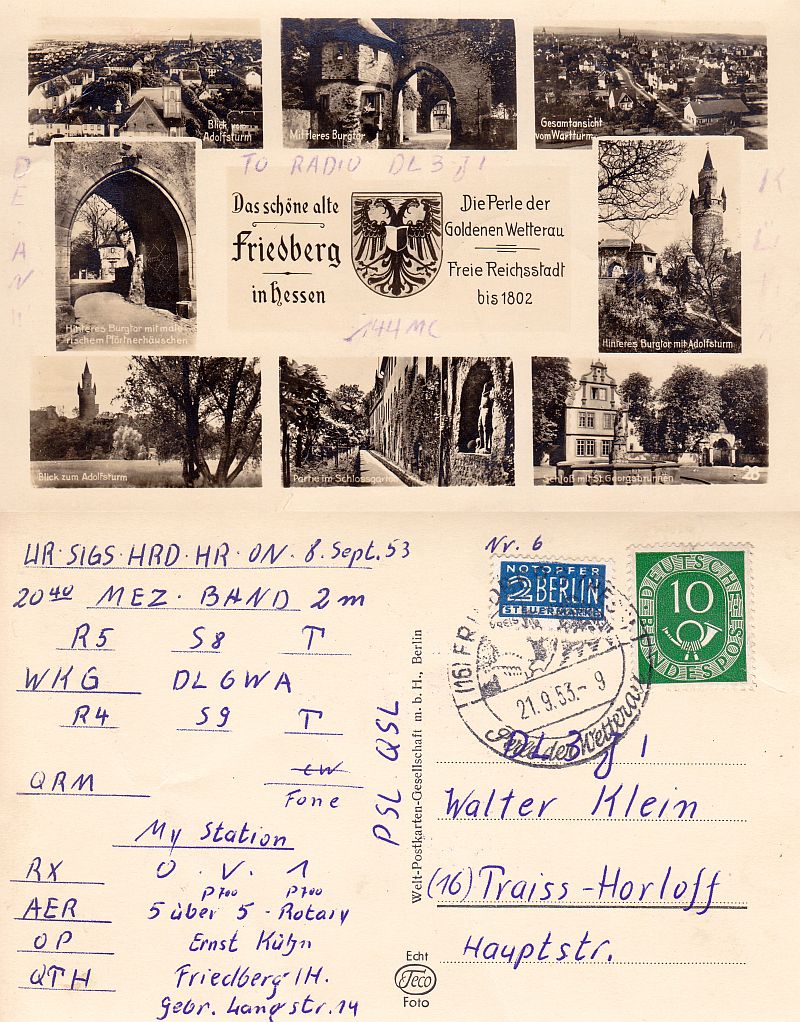 Blick vom
Adolfsturm
Mittleres Burgtor
Gesamtansicht
vom Wartturm
TO RADIO DL3JI
Das schöne alte
Friedberg
in Hessen
Die Perle der
Goldenen Wetterau
Freie Reichsstadt
bis 1802
144 MC
Hinteres Burgtor mit male-
rischem Pförtnerhäuschen
Hinteres Burgtor mit Adolfsturm
Blick zum Adolfsturm
Partie im Schlossgarten
Schloß mit St. Georgsbrunnen
26
UR·SIGS·HRD·HR·ON·8.Sept.53
20⁴⁰ MEZ·BAND 2m
R5 S8 T
WKG DL6WA
R4 S9 T
QRM CW
Fone
My Station
RX O.V.1
P700 P700
AER 5 über 5-Rotary
OP Ernst Kühn
QTH Friedberg/H.
Gebr. Langstr. 14
PSL QSL
Welt-Postkarten-Gesellschaft m.b.H., Berlin
Echt
Teco
Foto
Nr. 6
NOTOPFER
2 BERLIN
STEUERMARKE
DEUTSCHE
BUNDESPOST
10
(16) FRIEDBERG
21.9.53.-9
Perle der Wetterau
DL3JI
Walter Klein
(16) Traiss-Horloff
Hauptstr.